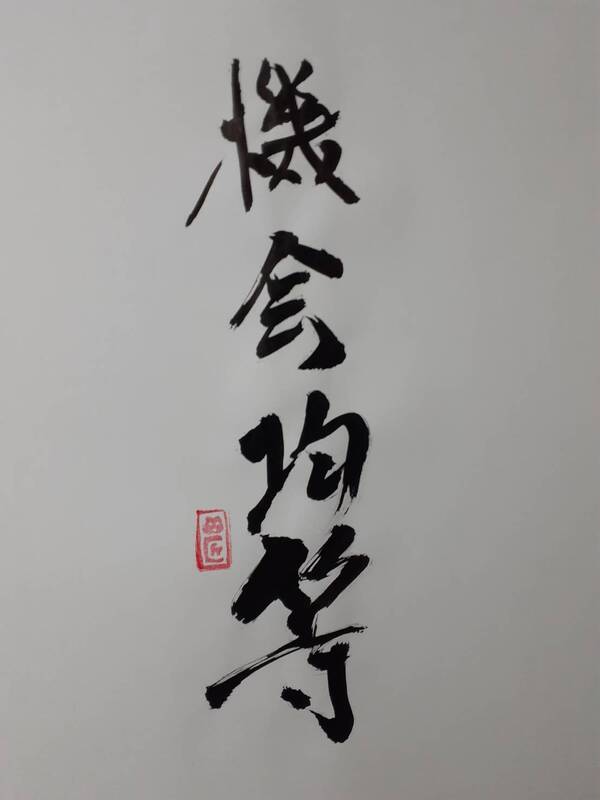 機会均等